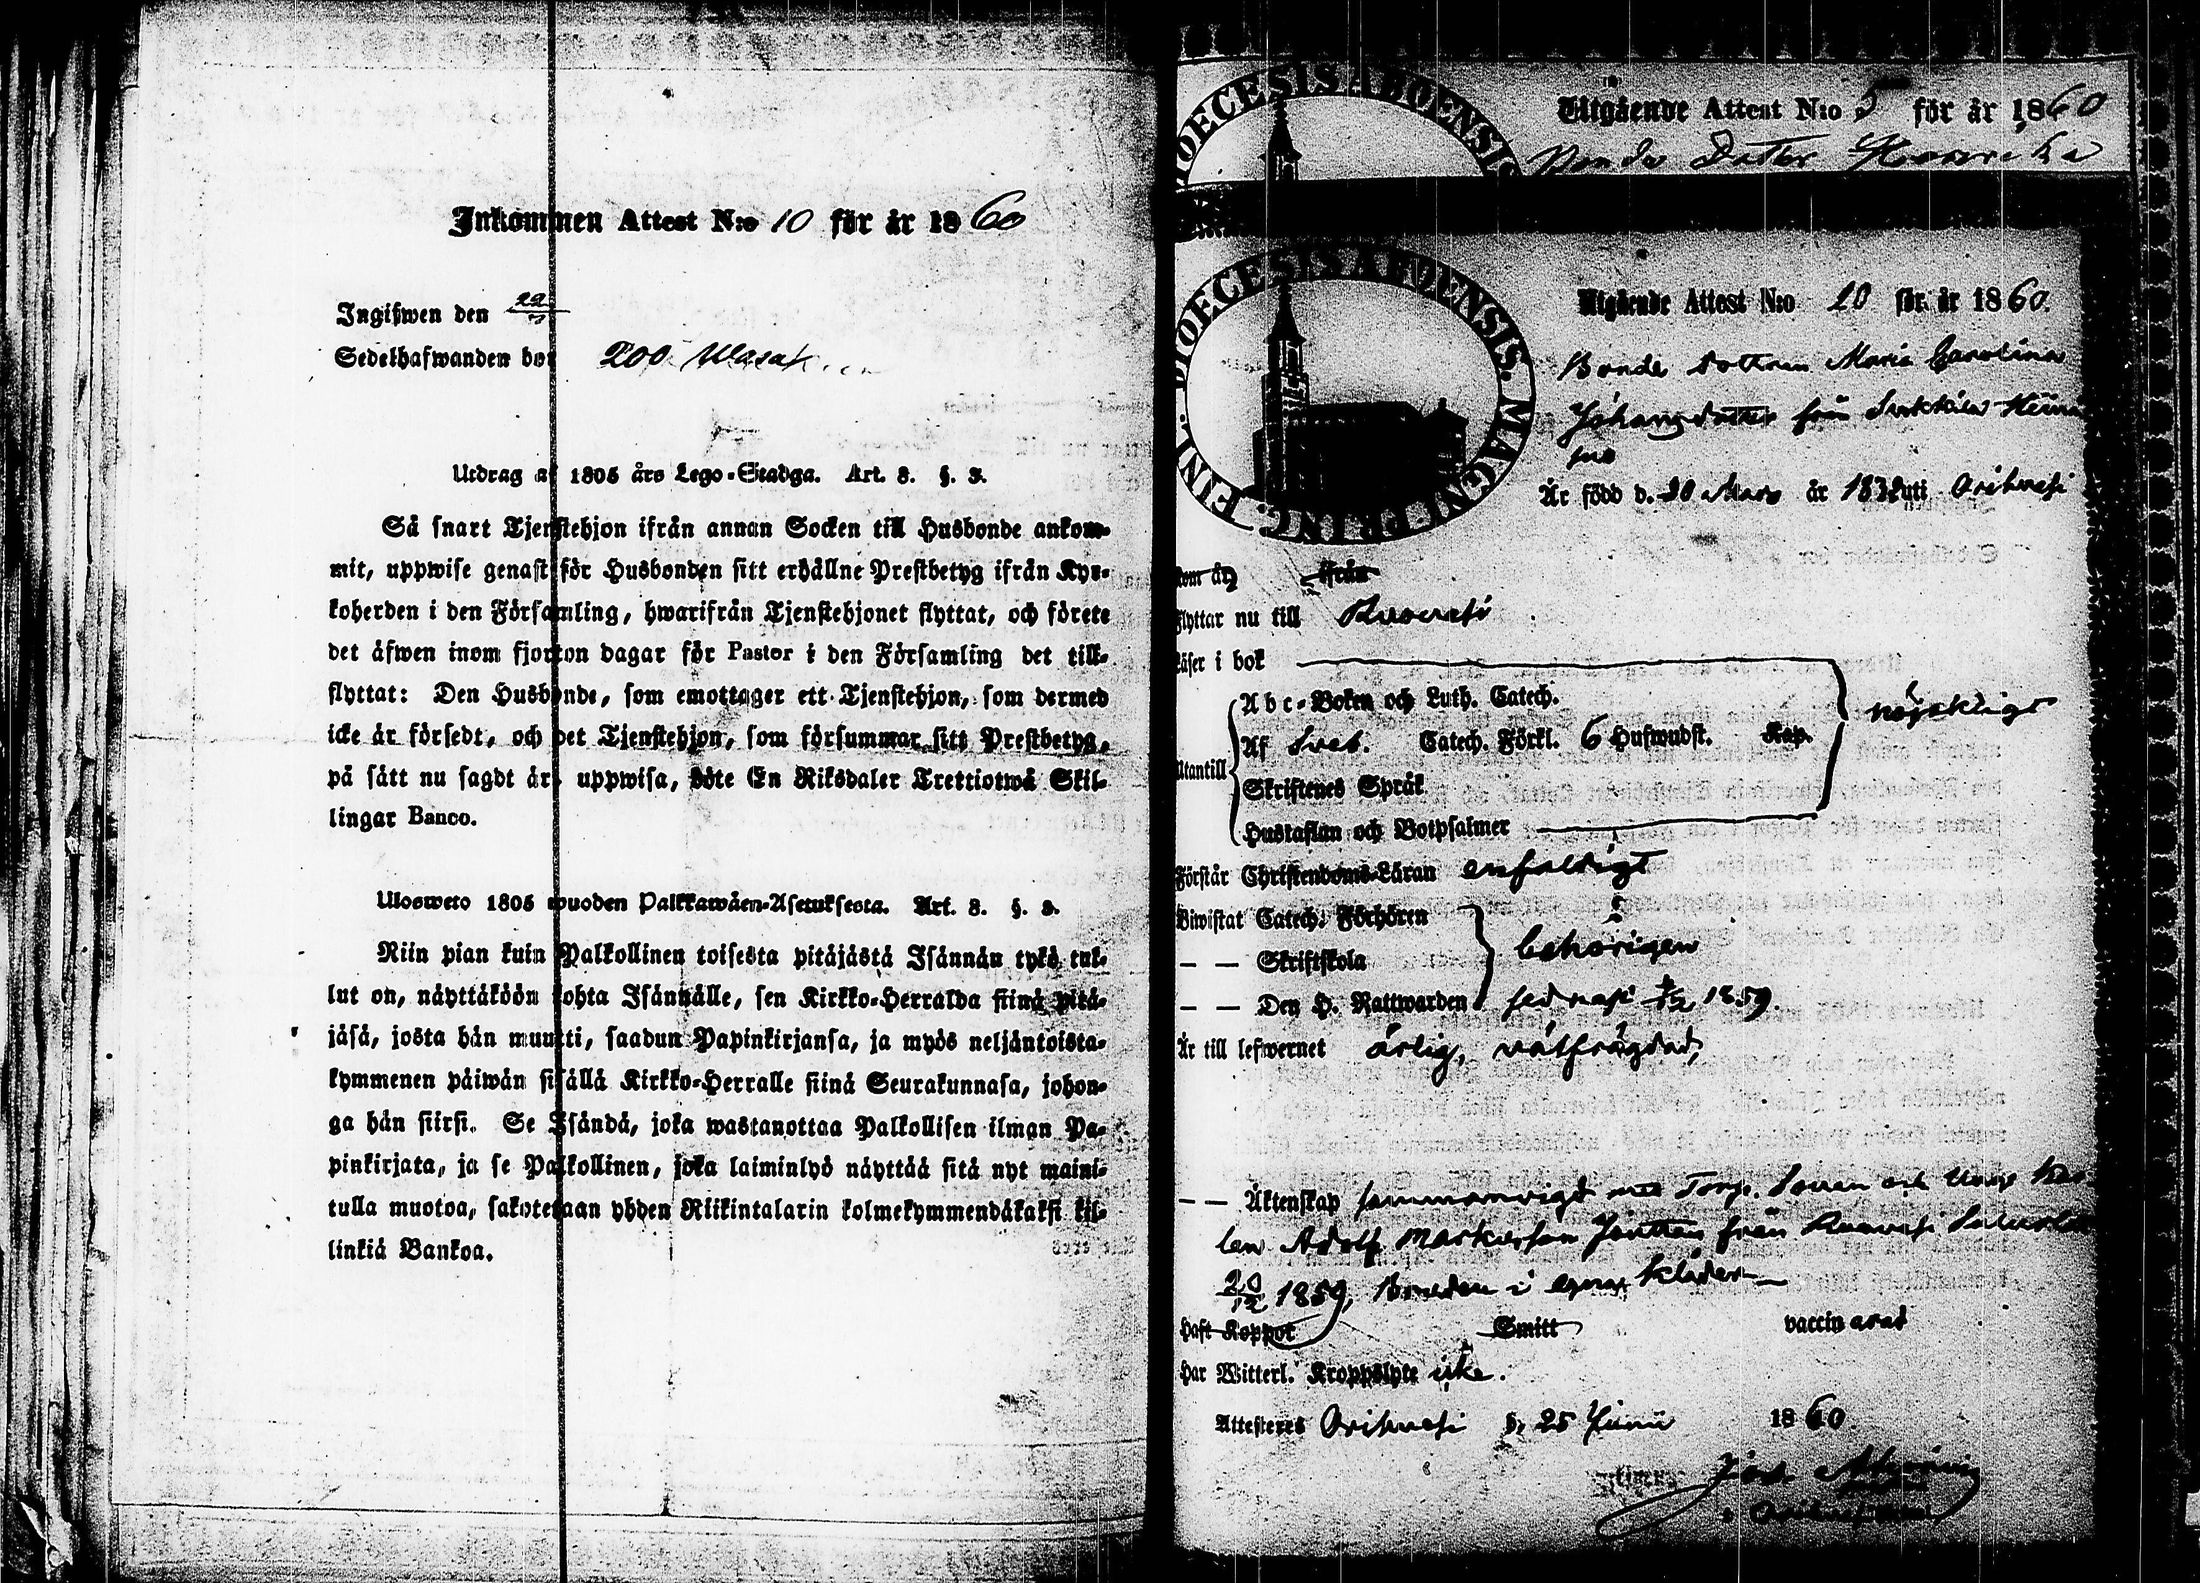 Inkommen Attest N:o 10 för år 1860
Ingifwen den 22/7
Sedelhafwanden bor
Utdrag af 1805 års Lego-Stadga. Art. 8. §. 3.
Så snart Tjenstehjon ifrån annan Socken till Husbonde ankom-
mit, uppwise genast för Husbonden sitt erhållne Prestbetyg ifrån Kyr-
koherden i den Församling, hwarifrån Tjenstehjonet flyttat, och förete
det äfwen inom fjorton dagar för Pastor i den Församling det till-
flyttat: Den Husbonde, som emottager ett Tjenstehjon, som dermed
icke är försedt, och det Tjenstehjon, som försummar sitt Prestbetyg,
på sätt nu sagdt är, uppwisa, böte En Riksdaler Trettiotwå Skil-
lingar Banco.
Ulosweto 1805 wuoden Palkkawäen-Asetuksesta. Art. 8. §. 3.
Niin pian kuin Palkollinen toisesta pitäjästä Isännän tykö tul-
lut on, näyttäköön kohta Isännälle, sen Kirkko-Herralda siinä pitä-
jäsä, josta hän muutti, saadun Papinkirjansa, ja myös neljäntoista-
kymmenen päiwän sisällä Kirkko-Herralle siinä Seurakunnasa, johon-
ga hän siirsi. Se Isändä, joka wastanottaa Palkollisen ilman Pa-
pinkirjata, ja se Palkollinen, joka laiminlyö näyttää sitä nyt maini-
tulla muotoa, sakotetaan yhden Riikintalarin kolmekymmendäkaksi kil-
linkiä Bankoa.
DIOECESIS ABOENSIS
Utgående Attest N:o 5 för år 1860
Bonde Dotter
DIOECESIS ABOENSIS. MAGNI PRINC. FINL.
Utgående Attest N:o 10 för år 1860.
Bonde dottren Maria Carolina
Johansdotter från
Är född d. 20 Mars år 1838 uti Orihvesi
som år ifrån
Flyttar nu till Ruovesi
Läser i bok
Abc-Boken och Luth. Catech. nöjaktigt
Utantill Af Sveb. Catech. Förkl. 6 Hufwudst. Kap.
Skriftenes Språk
Hustaflan och Botpsalmer
Förstår Christendoms-Läran enfaldigt
Biwistat Catech. Förhören
— — Skriftskola behörigen
— — Den H. Nattwarden sednast 1859.
Är till lefwernet ärlig, välfrägdad,
— — Äktenskap sammanvigd med Torp. Sonen och Unge Kar
len Adolf Jäntten från Ruovesi
1859, Bruden i egna kläder
Haft Koppor Smitt vaccinerad
Har Witterl. Kroppslyte icke.
Attesteras Orihvesi d. 25 Junii 1860